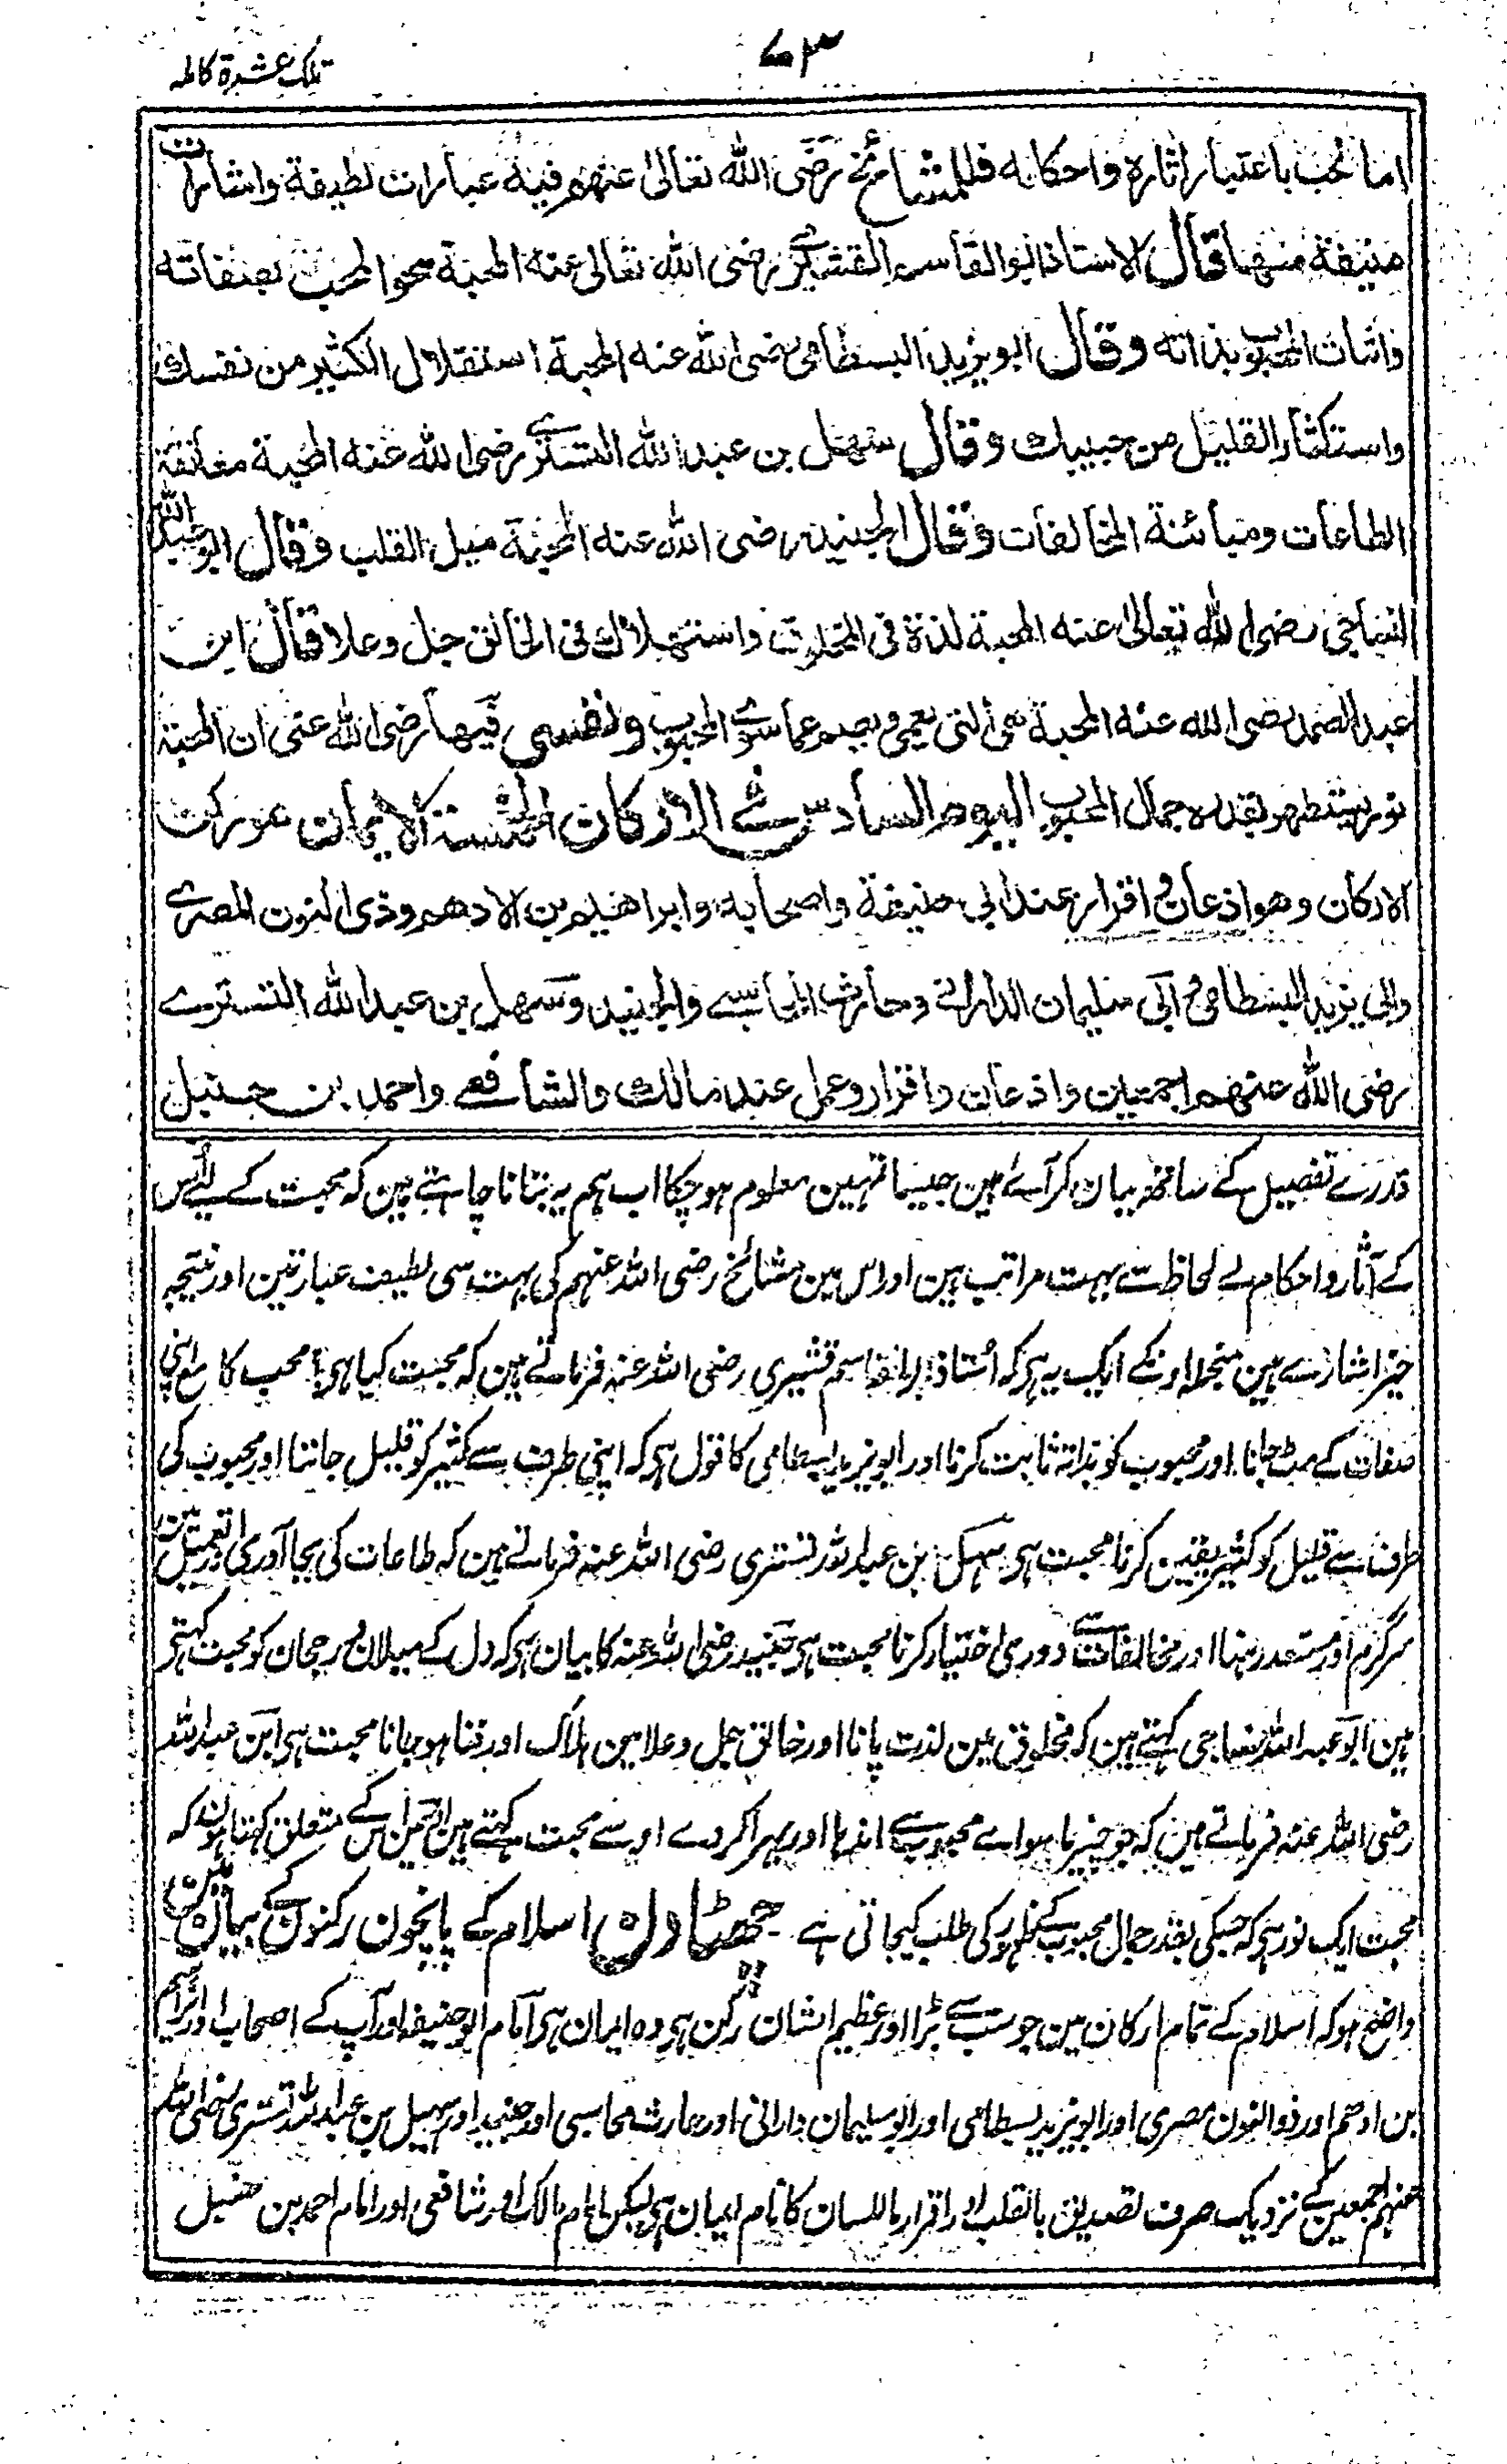 ۷۳
تلک عشرة کاملہ
اما الحب باعتبار اثاره واحکامه فللمشائخ رضی الله تعالیٰ عنهم فیه عبارات لطیفة واشارات
منیفة منها قال الاستاذ ابو القاسم القشیری رضی الله تعالی عنه المحبة محو المحب بصفاته
واثبات المحبوب بذاته وقال ابو یزید البسطامی رضی الله عنه المحبة استقلال الکثیر من نفسك
واستکثار القلیل من حبیبك وقال سهل بن عبد الله التستری رضی الله عنه المحبة معانقة
الطاعات ومبائنة المخالفات وقال الجنید رضی الله عنه المحبة میل القلب وقال ابو عبد الله
النباجی رضی الله تعالیٰ عنه المحبة لذة فی المخلوق واستهلاك فی الخالق جل وعلا قال ابن
عبد الصمد رضی الله عنه المحبة هی التی یعمی ویصم عما سوی المحبوب ونفسی فیها رضی الله عنی ان المحبة
نور یستظهر بقدره جمال المحبوب الیوم السادس فی الارکان الخمسة الایمان عمود رکن
الارکان وهو اذعان واقرار عند ابی حنیفة واصحابه وابراهیم بن الادهم وذی النون المصری
وابی یزید البسطامی وابی سلیمان الدارانی وحارث المحاسبی والجنید وسهل بن عبد الله التستری
رضی الله عنهم اجمعین واذعان واقرار وعمل عند مالك والشافعی واحمد بن حنبل
قدرے تفصیل کے ساتھ بیان کر آئے ہین جیسا تمہین معلوم ہو چکا اب ہم یہ بتانا چاہتے ہین کہ محبت کے لیے اُس
کے آثار و احکام کے لحاظ سے بہت مراتب ہین اور اس مین مشائخ رضی اللہ عنہم کی بہت سی لطیف عبارتین اور نتیجہ
خیز اشارے ہین منجملہ اونکے ایک یہ ہی کہ اُستاذ ابو القاسم قشیری رضی اللہ عنہ فرماتے ہین کہ محبت کیا ہی؟ محب کا مع اپنی
صفات کے مٹ جانا اور محبوب کو بذاتہ ثابت کرنا اور ابو یزید بسطامی کا قول ہی کہ اپنی طرف سے کثیر کو قلیل جاننا اور محبوب کی
طرف سے قلیل کو کثیر یقین کرنا محبت ہی سہل بن عبد اللہ تستری رضی اللہ عنہ فرماتے ہین کہ طاعات کی بجا آوری اور تعمیل مین
سرگرم اور مستعد رہنا اور مخالفات سے دوری اختیار کرنا محبت ہی جنید رضی اللہ عنہ کا بیان ہی کہ دل کے میلان و رجحان کو محبت کہتے
ہین ابو عبد اللہ نباجی کہتے ہین کہ مخلوق مین لذت پانا اور خالق جل وعلا مین ہلاک اور فنا ہو جانا محبت ہی ابن عبد اللہ
رضی اللہ عنہ فرماتے ہین کہ جو چیز ماسواے محبوب سے اندھا اور بہرا کر دے اوسے محبت کہتے ہین اس کے متعلق کہتا ہون کہ
محبت ایک نور ہی کہ جسکی بقدر جمال محبوب کے ظہور کی طلب کیجاتی ہے چھٹا دن اسلام کے پانچون رکنون کے بیان مین
واضح ہو کہ اسلام کے تمام ارکان مین جو سب سے بڑا اور عظیم الشان رُکن ہی وہ ایمان ہی امام ابو حنیفہ اور آپ کے اصحاب اور ابراہیم
بن ادہم اور ذو النون مصری اور ابو یزید بسطامی اور ابو سلیمان دارانی اور حارث محاسبی اور جنید اور سہیل بن عبد اللہ تستری رضی اللہ
عنہم اجمعین کے نزدیک صرف تصدیق بالقلب اور اقرار باللسان کا نام ایمان ہی لیکن امام مالک اور شافعی اور امام احمد بن حنبل